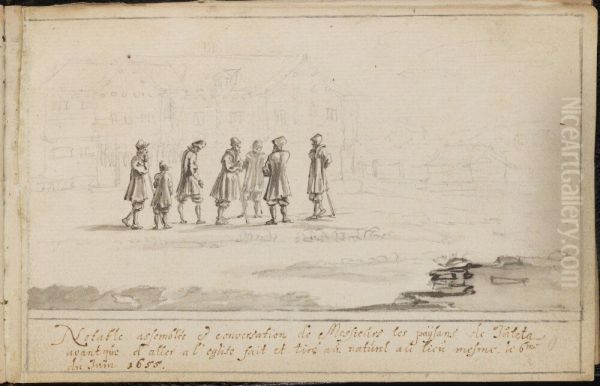 Notable assemblée & conversation de Messieurs les paÿsans de
avant que d'aller a l'eglise fait et tiré au naturel au lieu mesme. le 6me
du Juin 1655.
NiceArtGallery.com